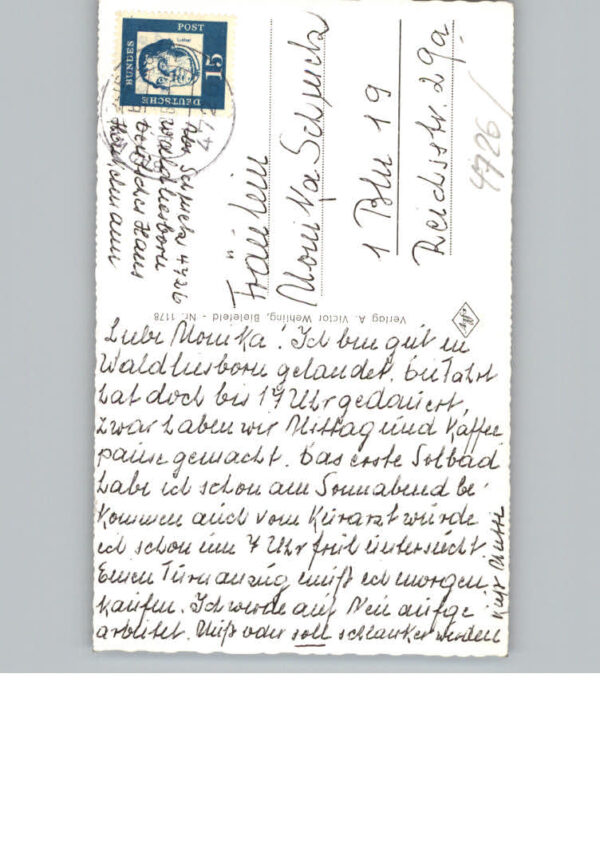 Liebe Monika! Ich bin gut in
Waldliesborn gelandet. Die Fahrt
hat doch bis 17 Uhr gedauert,
zwar haben wir Mittag und Kaffee
pause gemacht. Das erste Solbad
habe ich schon am Sonnabend be
kommen auch vom Kurarzt wurde
ich schon um 7 Uhr früh untersucht.
Einen Turnanzug muß ich morgen
kaufen. Ich werde auf Neu aufge
arbeitet. Muß oder soll schlanker werden
Fräulein
Monika
1 Bln 19
Reichsstr. 29a
4726
Waldliesborn
Deutsches Haus
DEUTSCHE
BUNDES
POST
15
Luther
Verlag A. Victor Wehling, Bielefeld - Nr. 1178
Agfa